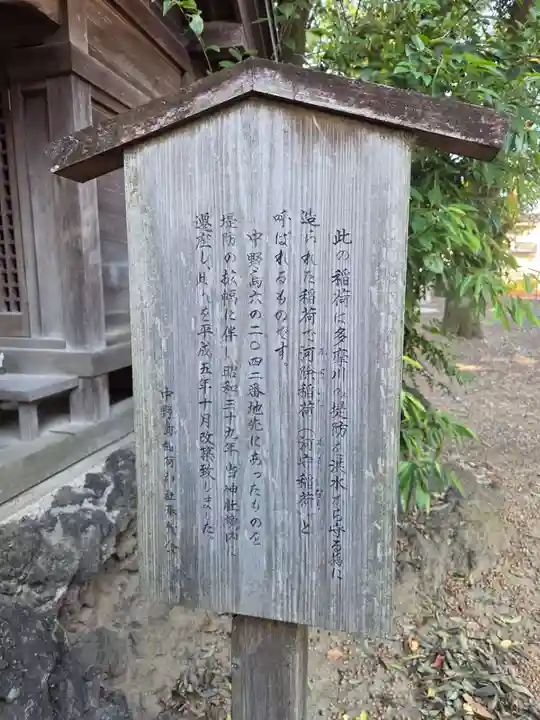 此の稲荷は多摩川の堤防を洪水から守る為に
造られた稲荷で河除稲荷(河守稲荷)と
呼ばれるものです。
中野島六の二〇四二番地先にあったものを
堤防の拡幅に伴し昭和三十九年当神社境内に
遷座し此れを平成五年十月改築致しました。
中野島稲荷神社奉賛会